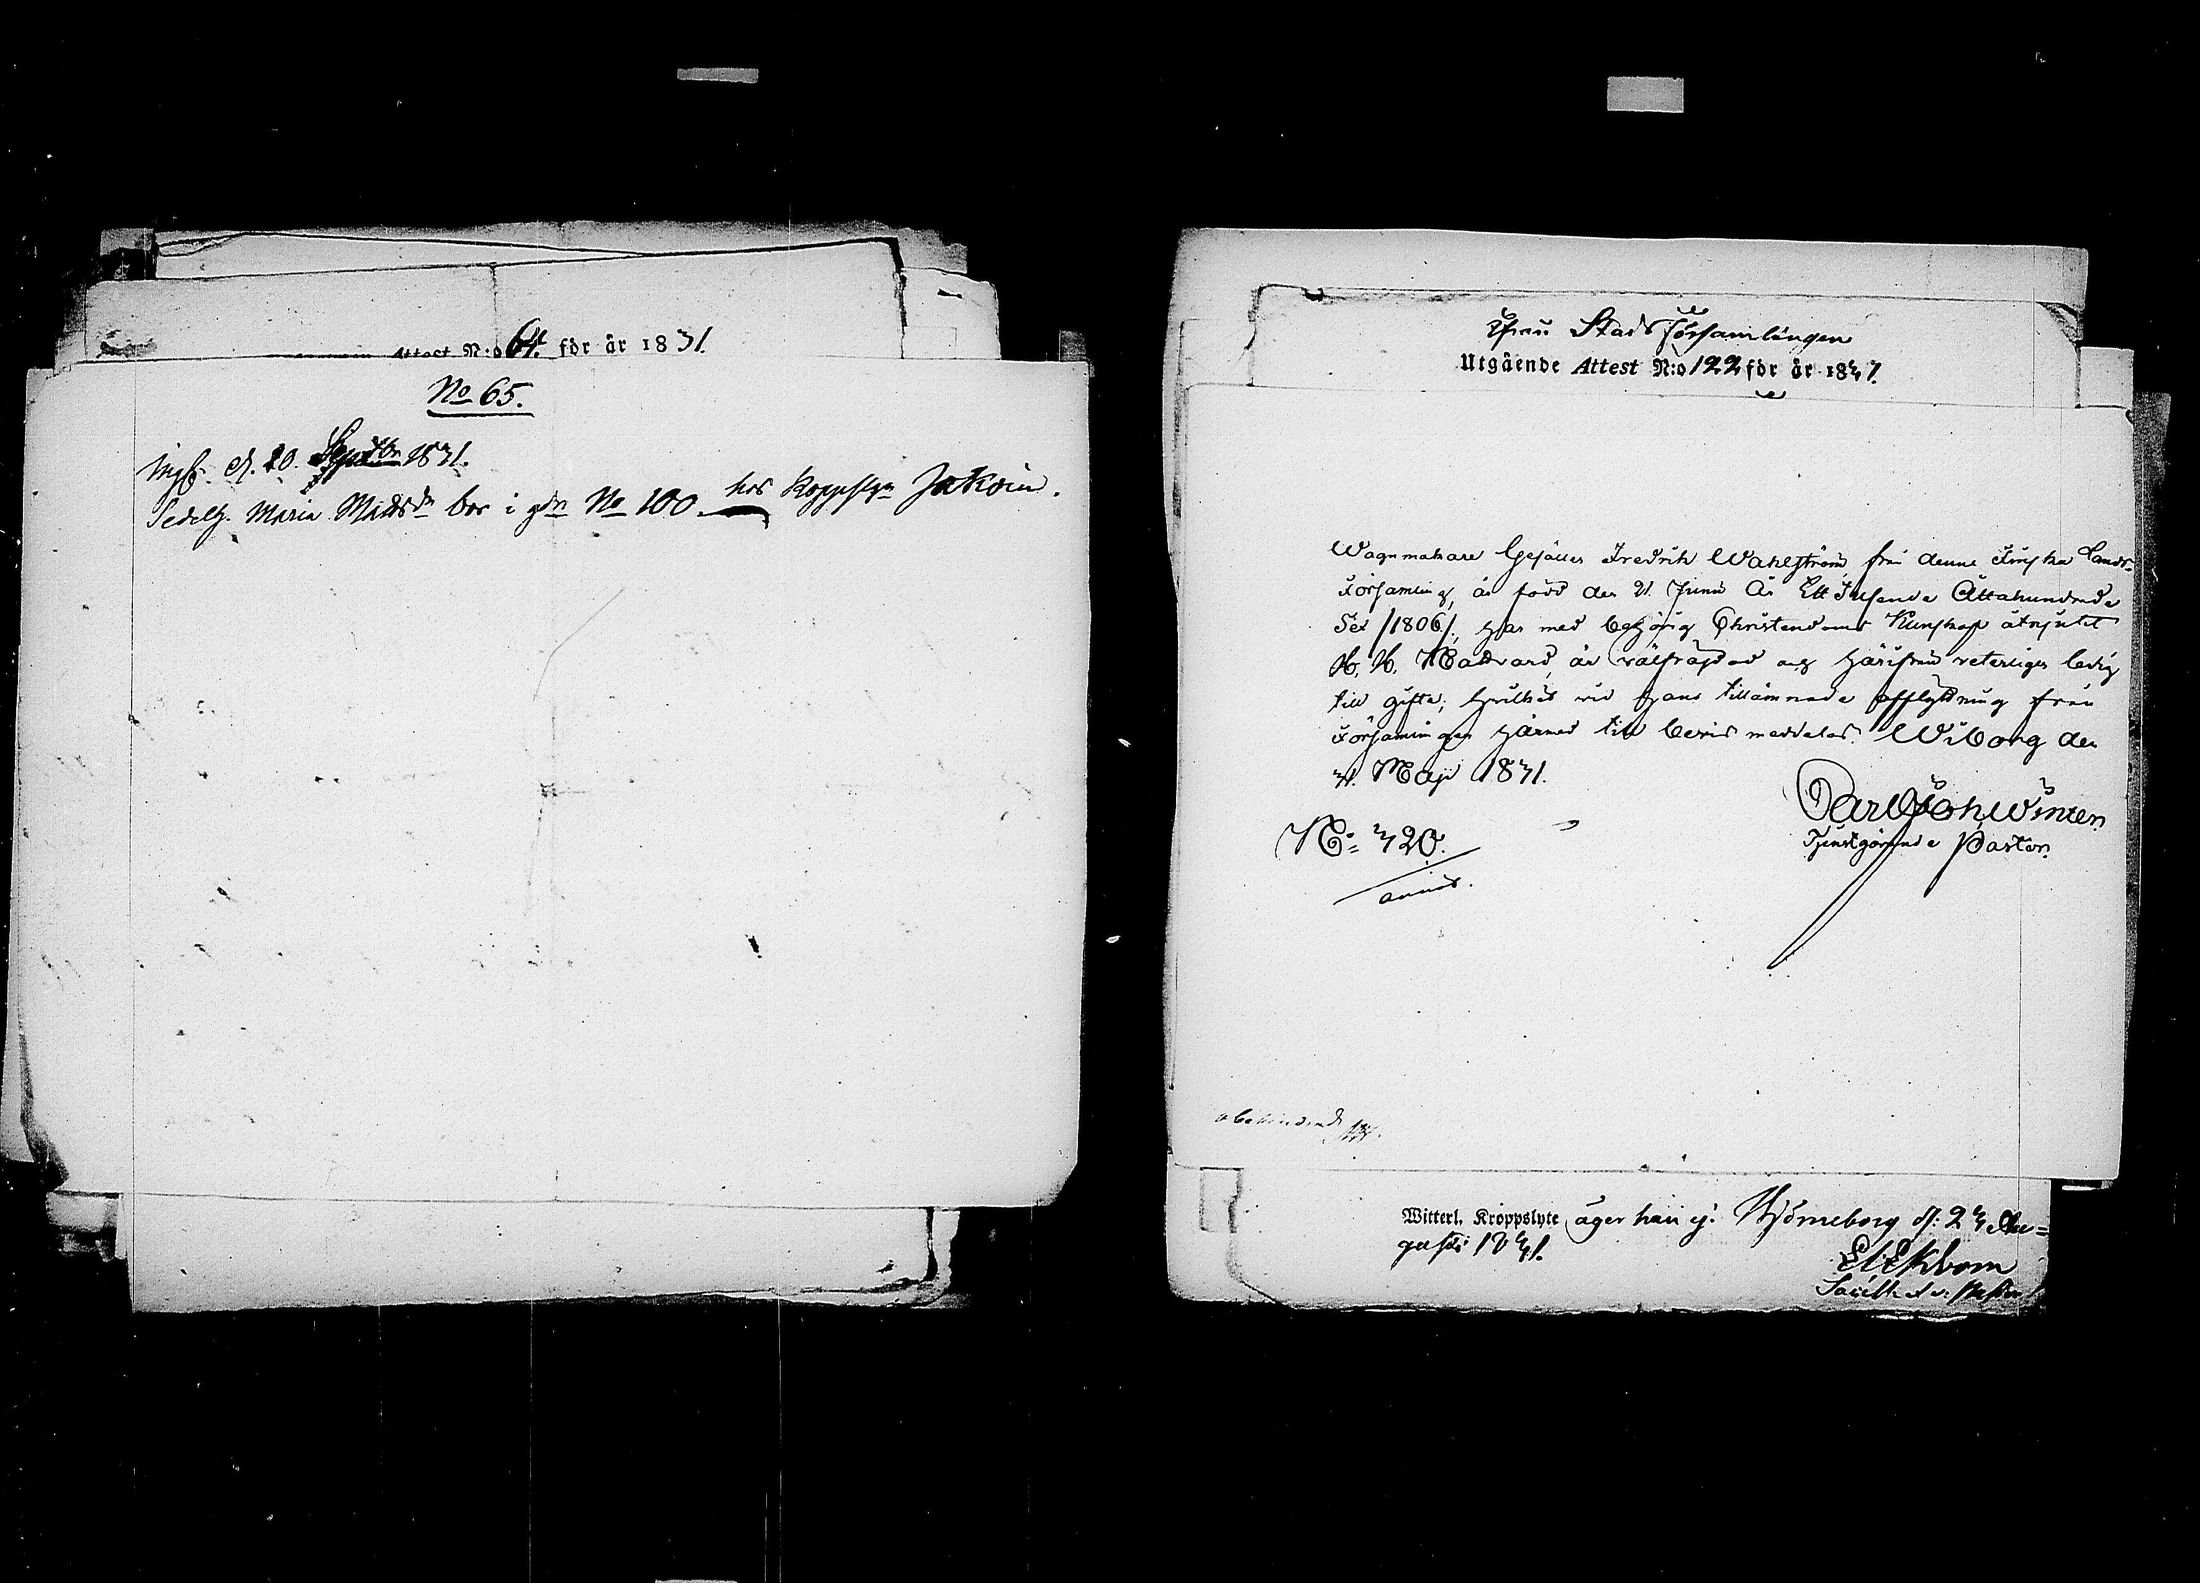 Attest N:o 64. för år 1831.
No 65.
Ingk. d. 20. Septbr 1831.
Sedelh. Maria Matsdr bor i gdn No 100 hos Koppslgn Jakvin.
Ifrån Stads Församlingen
Utgående Attest N:o 122 för år 1831.
Wagnmakare Gesällen Fredrik Wahlström från denne Finska Lands-
Församling, är född den 21. Junii År Ett Tusende Åttahundrade
Sex /1806/, har med behörig Christendoms Kunskap åtnjutit
H. H. Nattvard, är välfräjdad och härifrån veterligen ledig
till gifte; hvilket vid hans tillämnade afflyttning från
Församlingen härmed till bevis meddelas. Wiborg den
31. Maji 1831.
Carl Joh. Winter.
Tjenstgörande Pastor.
No 320.
Witterl. Kroppslyte äger han ej. Björneborg d: 23 Au=
gusti 1831.
Ekbom